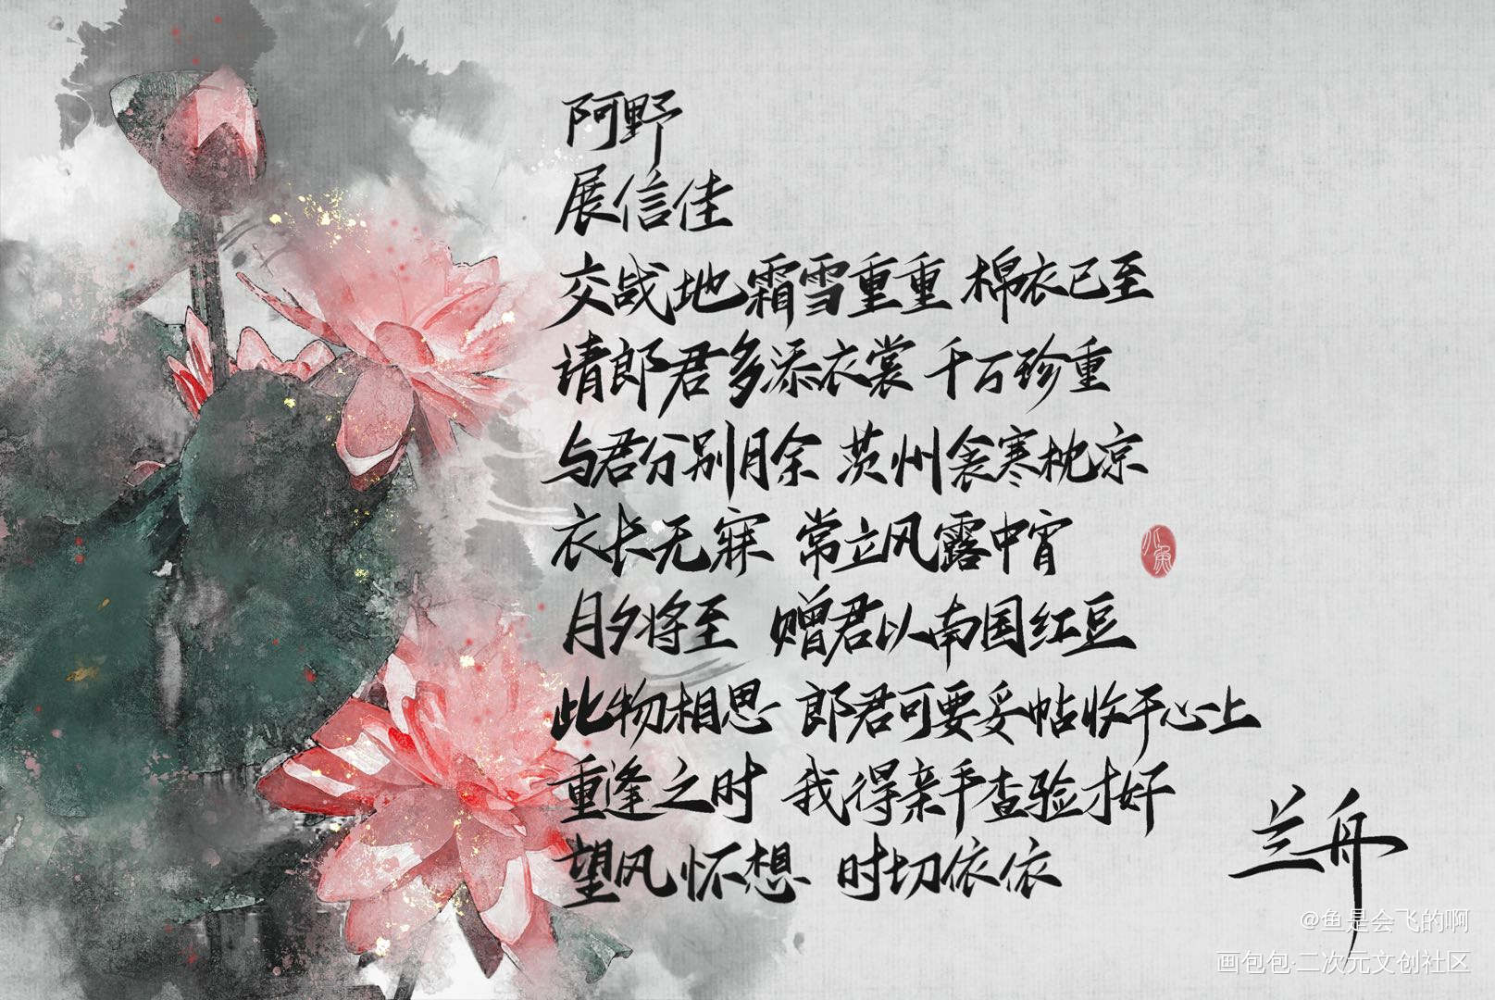 阿野
展信佳
交战地霜雪重重 棉衣已至
请郎君多添衣裳 千万珍重
与君分别月余 茨州衾寒枕凉
衣长无寐 常立风露中宵
月夕将至 赠君以南国红豆
此物相思 郎君可要妥帖收于心上
重逢之时 我得亲手查验才好
望风怀想 时切依依
兰舟
小鱼
@鱼是会飞的啊
画包包·二次元文创社区